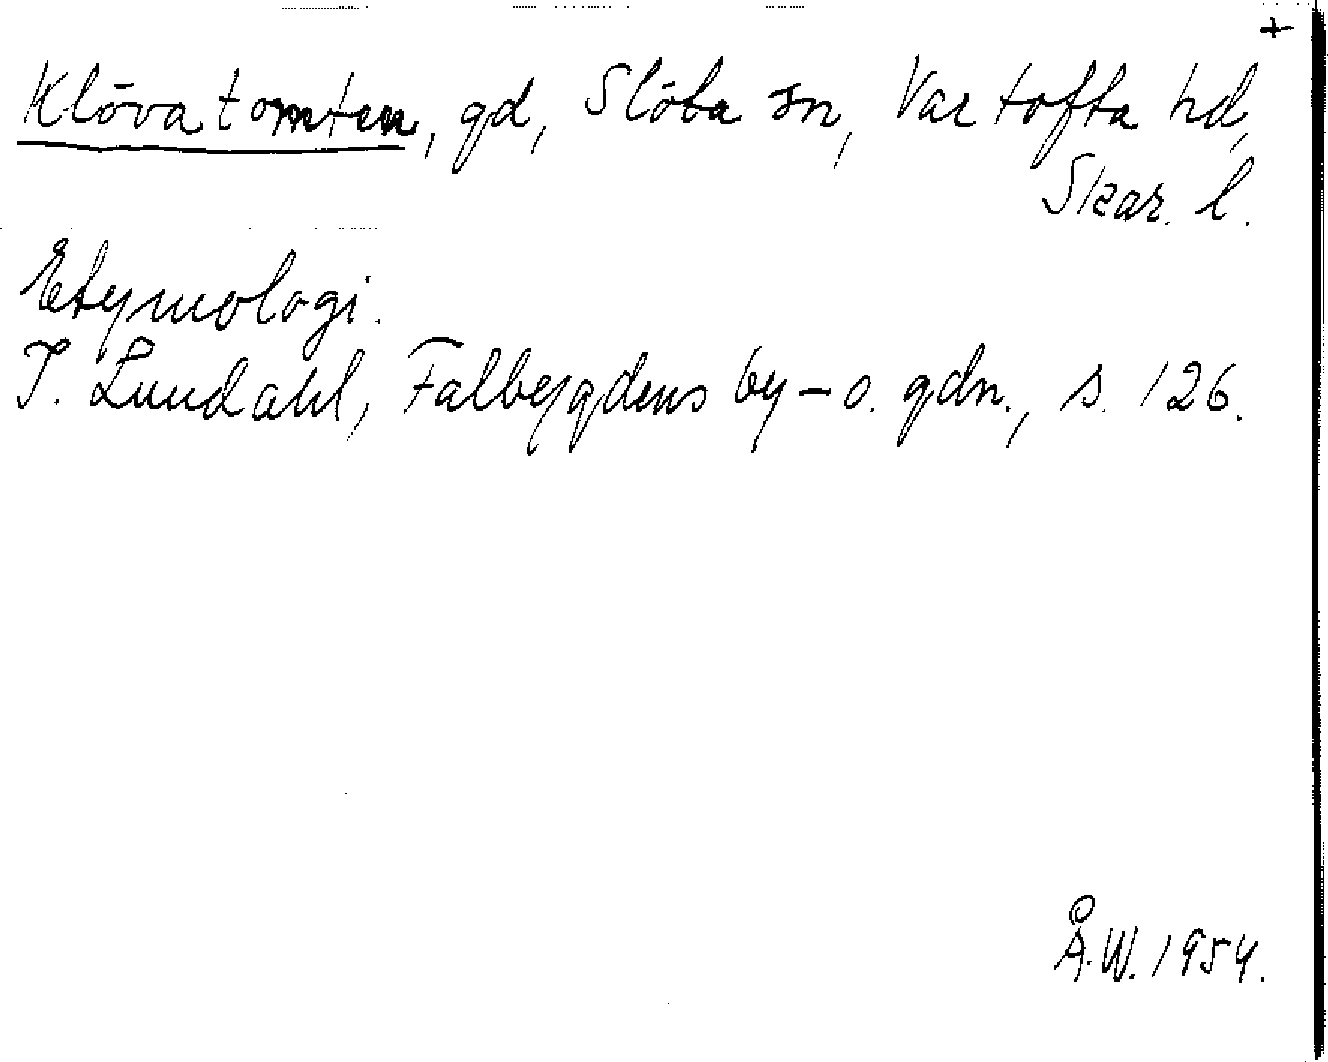 +
Klövatomten, gd, Slöta sn, Vartofta hd,
Skar. l.
Etymologi.
I. Lundahl, Falbygdens by- o. gdn., s. 126.
Å.W. 1954.